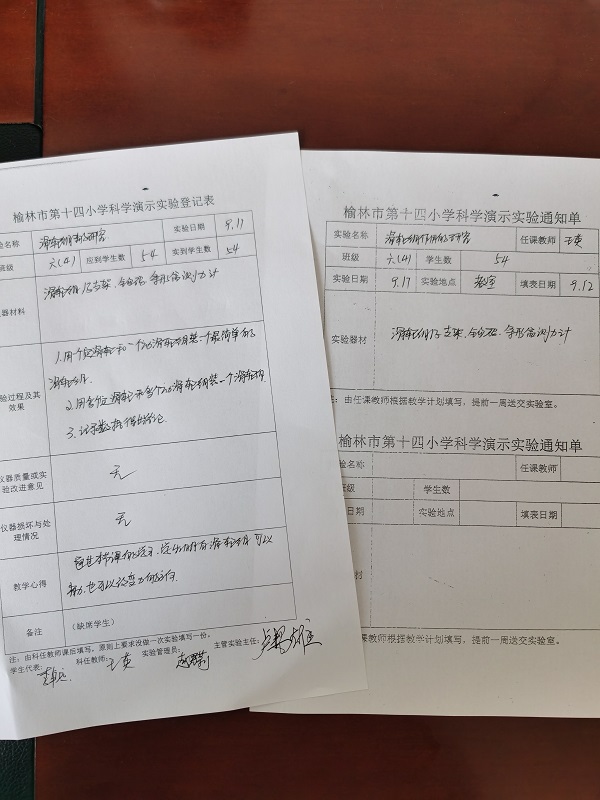 榆林市第十四小学科学演示实验登记表
验名称 滑轮组的研究 实验日期 9.17
班级 六(4) 应到学生数 54 实到学生数 54
器材料 滑轮组及支架、钩码、条形盒测力计
验过程及其效果
1.用个定滑轮和一个动滑轮组装一个最简单的
滑轮组.
2.用多个定滑轮和多个动滑轮组装一个滑轮组
3.记录数据得出结论
仪器质量或实验改进意见 无
仪器损坏与处理情况 无
教学心得
力,也可以改变力的方向.
备注 (缺席学生)
注:由科任教师课后填写。原则上要求没做一次实验填写一份。
学生代表: 科任教师: 王英 实验管理员: 主管实验主任:
榆林市第十四小学科学演示实验通知单
实验名称 滑轮组作用的研究 任课教师 王英
班级 六(4) 学生数 54
实验日期 9.17 实验地点 教室 填表日期 9.12
实验器材 滑轮组及支架、钩码、条形盒测力计
:由任课教师根据教学计划填写,提前一周送交实验室。
榆林市第十四小学科学演示实验通知单
验名称 任课教师
班级 学生数
日期 实验地点 填表日期
器材
任课教师根据教学计划填写,提前一周送交实验室。